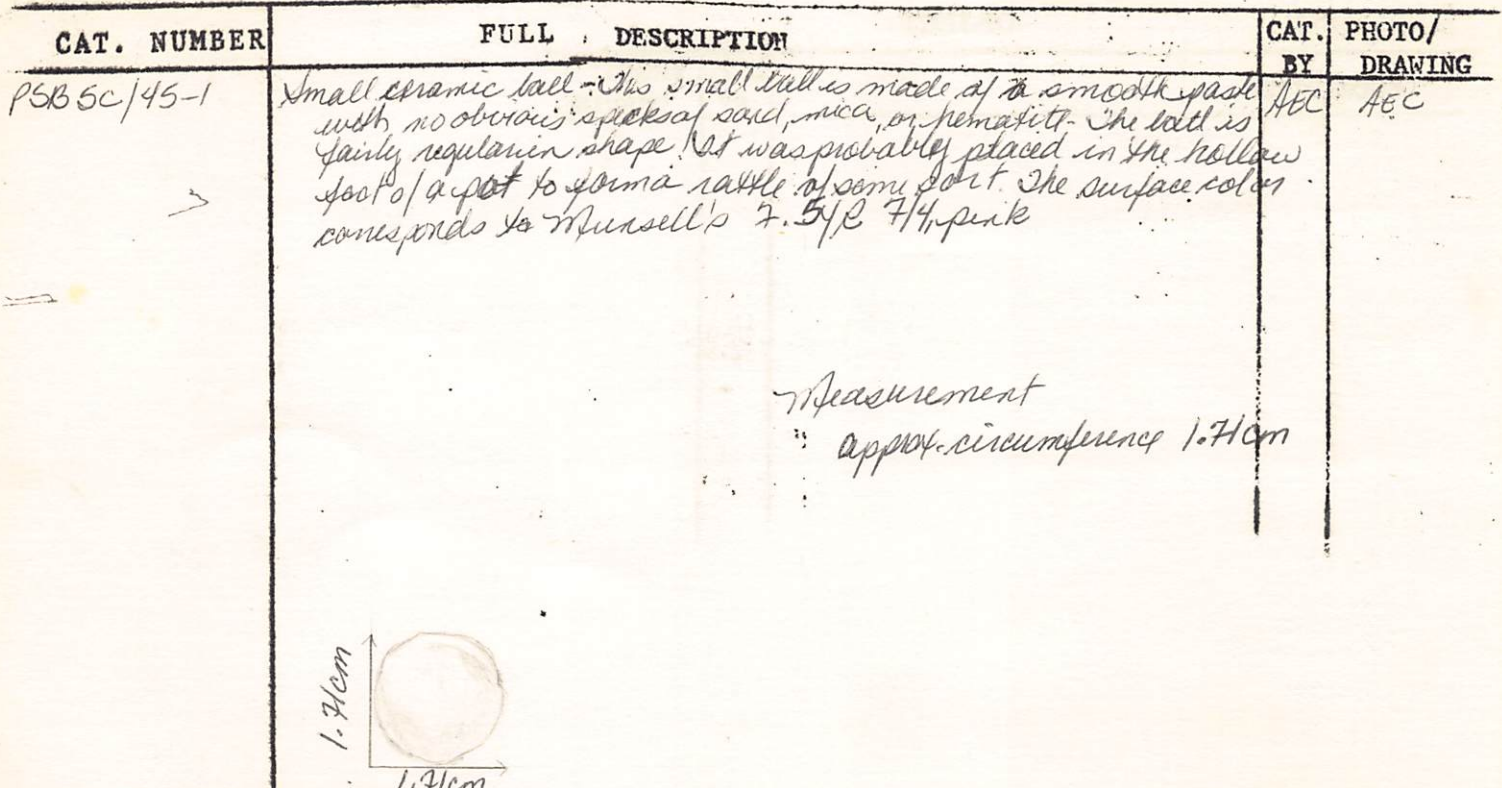 CAT. NUMBER FULL DESCRIPTION CAT. BY PHOTO/ DRAWING
PSB 5C/45-1 Small ceramic ball - This small ball is made of a smooth paste AEC AEC
with no obvious specks of sand, mica, or hematite. The ball is
fairly regular in shape. It was probably placed in the hollow
foot of a pot to form a rattle of some sort. The surface color
corresponds to Munsell's 7.5YR 7/4, pink
Measurement
approx. circumference 1.71cm
1.71cm
1.71cm